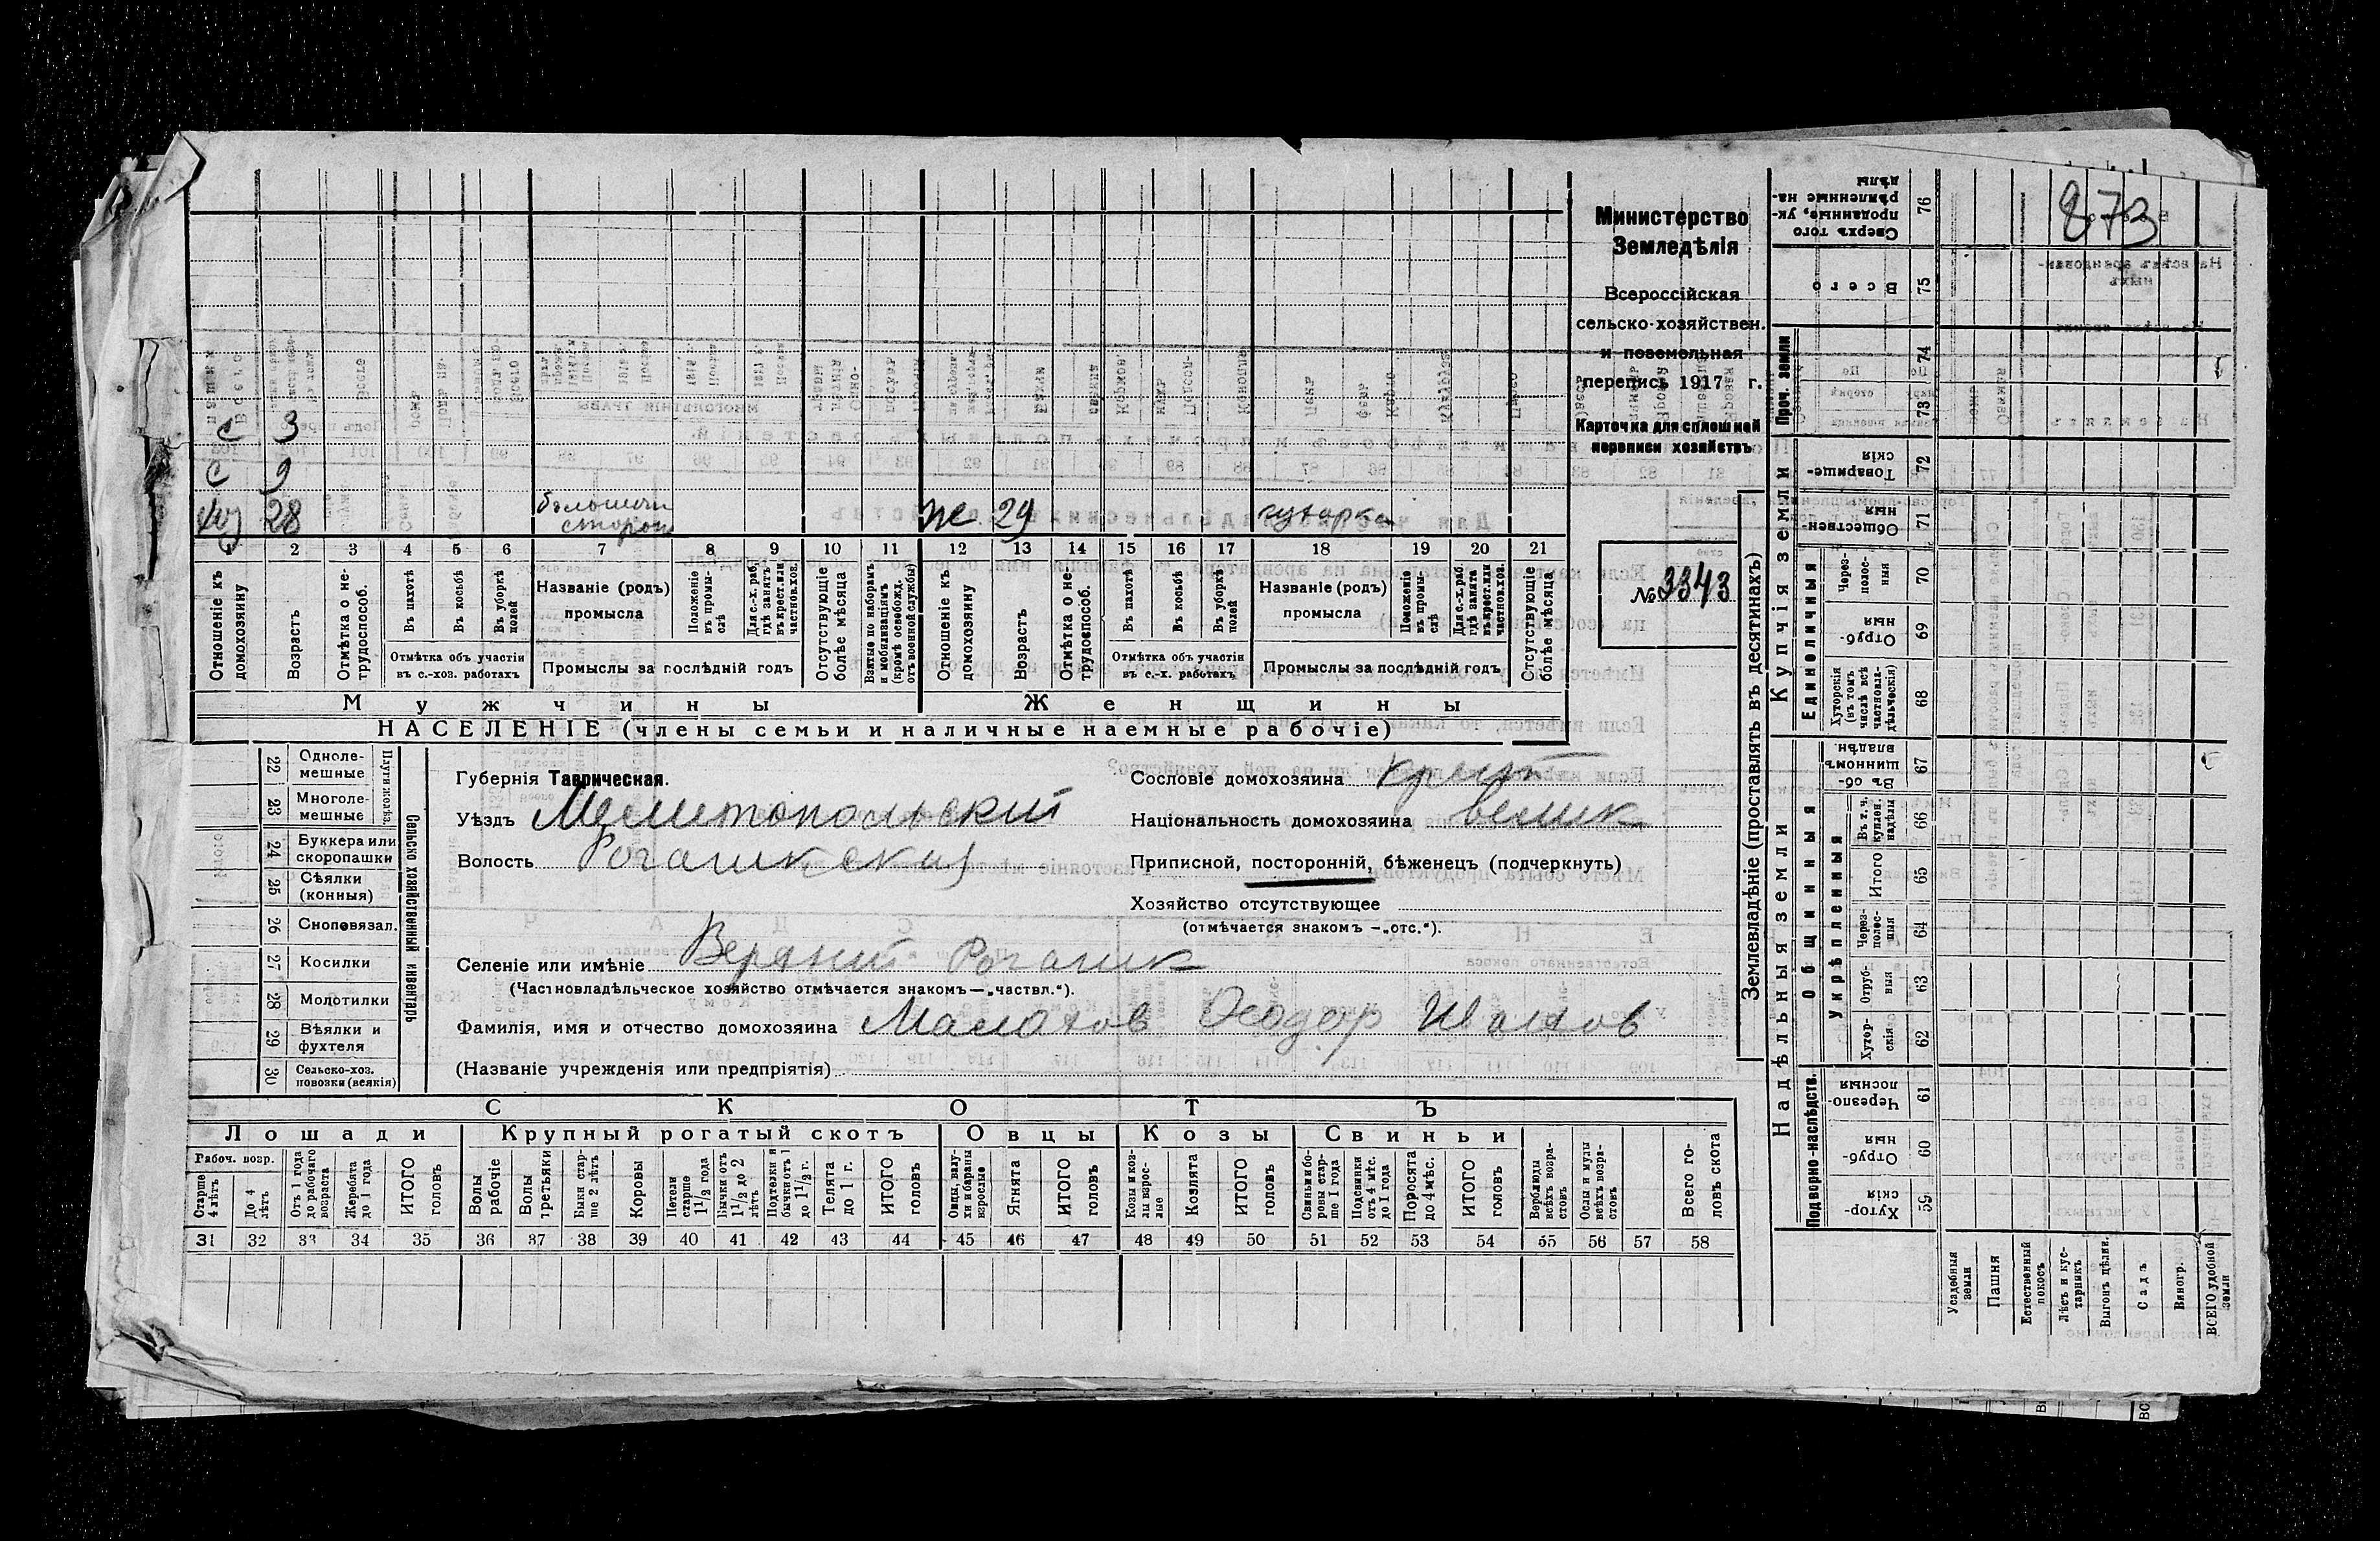 873
Министерство
Земледѣлія
Всероссійская
сельско-хозяйствен.
и поземельная
перепись 1917 г.
Карточка для сплошной
переписи хозяйствъ
№ 3343
с 3
с 9
28
сторож
ж 29
1 2 3 4 5 6 7 8 9 10 11 12 13 14 15 16 17 18 19 20 21
Отношеніе къ домохозяину
Возрастъ
Отмѣтка о не-трудоспособ.
Въ пахотѣ
Въ косьбѣ
Въ уборкѣ полей
Отмѣтка объ участіи въ с.-хоз. работахъ
Названіе (родъ) промысла
Положеніе въ промы-слѣ
Для с.-х. раб. гдѣ занятъ въ крест. или частнов. хоз.
Промыслы за послѣдній годъ
Отсутствующіе болѣе мѣсяца
Взятые по наборамъ и мобилизаціямъ (кромѣ освобожд. отъ военной службы)
Отношеніе къ домохозяину
Возрастъ
Отмѣтка о не-трудоспособ.
Въ пахотѣ
Въ косьбѣ
Въ уборкѣ полей
Отмѣтка объ участіи въ с.-х. работахъ
Названіе (родъ) промысла
Положеніе въ промы-слѣ
Для с.-х. раб. гдѣ занята въ крест. или частнов. хоз.
Промыслы за послѣдній годъ
Отсутствующіе болѣе мѣсяца
Мужчины Женщины
НАСЕЛЕНІЕ (члены семьи и наличные наемные рабочіе)
Сельско хозяйственный инвентарь
Плуги кол-ёз.
22 Одноле-мешные
23 Многоле-мешные
24 Буккера или скоропашки
25 Сѣялки (конныя)
26 Сноповязал.
27 Косилки
28 Молотилки
29 Вѣялки и фухтеля
30 Сельско-хоз. повозки (всякія)
Губернія Таврическая.
Уѣздъ Мелитопольский
Волость Рогачикская
Селеніе или имѣніе Верхний Рогачик
(Частновладѣльческое хозяйство отмѣчается знакомъ—„частвл.“).
Фамилія, имя и отчество домохозяина Малахов Феодор
(Названіе учрежденія или предпріятія)
Сословіе домохозяина крест
Національность домохозяина велик
Приписной, посторонній, бѣженецъ (подчеркнуть)
Хозяйство отсутствующее
(отмѣчается знакомъ —„отс.“).
СКОТЪ
Лошади Крупный рогатый скотъ Овцы Козы Свиньи
Рабоч. возр.
Старше 4 лѣтъ
До 4 лѣтъ
Отъ 1 года до рабочаго возраста
Жеребята до 1 года
ИТОГО головъ
Волы рабочіе
Волы третьяки
Быки стар-ше 2 лѣтъ
Коровы
Нетели старше 1 1/2 года
Бычки отъ 1 1/2 до 2 лѣтъ
Подтелки и бычки отъ 1 до 1 1/2 г.
Телята до 1 г.
ИТОГО головъ
Овцы, валу-хи и бараны взрослые
Ягнята
ИТОГО головъ
Козы и коз-лы взрос-лые
Козлята
ИТОГО головъ
Свиньи и бо-ровы стар-ше 1 года
Подсвинки отъ 4 мѣс. до 1 года
Поросята до 4 мѣс.
ИТОГО головъ
Верблюды всѣхъ возра-стовъ
Ослы и мулы всѣхъ возра-стовъ
Всего го-ловъ скота
31 32 33 34 35 36 37 38 39 40 41 42 43 44 45 46 47 48 49 50 51 52 53 54 55 56 57 58
Землевладѣніе (проставлять въ десятинахъ)
Надѣльныя земли
Купчія земли
Проч. земли
Подворно-наслѣдств.
Общинныя
Укрѣпленныя
Единоличныя
76 Сверхъ того проданные, ук-рѣпленные на-дѣлы
75 Всего
74
73
72 Товарище-скія
71 Обществен-ныя
70 Через-полос-ныя
69 Отруб-ныя
68 Хуторскія (въ томъ числѣ всѣ частновла-дѣльческія)
67 Въ об-щинномъ владѣн.
66 Въ т. ч. куплен. надѣлы
65 Итого
64 Через-полос-ныя
63 Отруб-ныя
62 Хутор-скія
61 Черезпо-лосныя
60 Отруб-ныя
59 Хутор-скія
Усадебныя земли
Пашня
Естественный покосъ
Лѣсъ и кус-тарникъ
Выгонъ цѣлин.
Садъ
Виногр.
ВСЕГО удобной земли